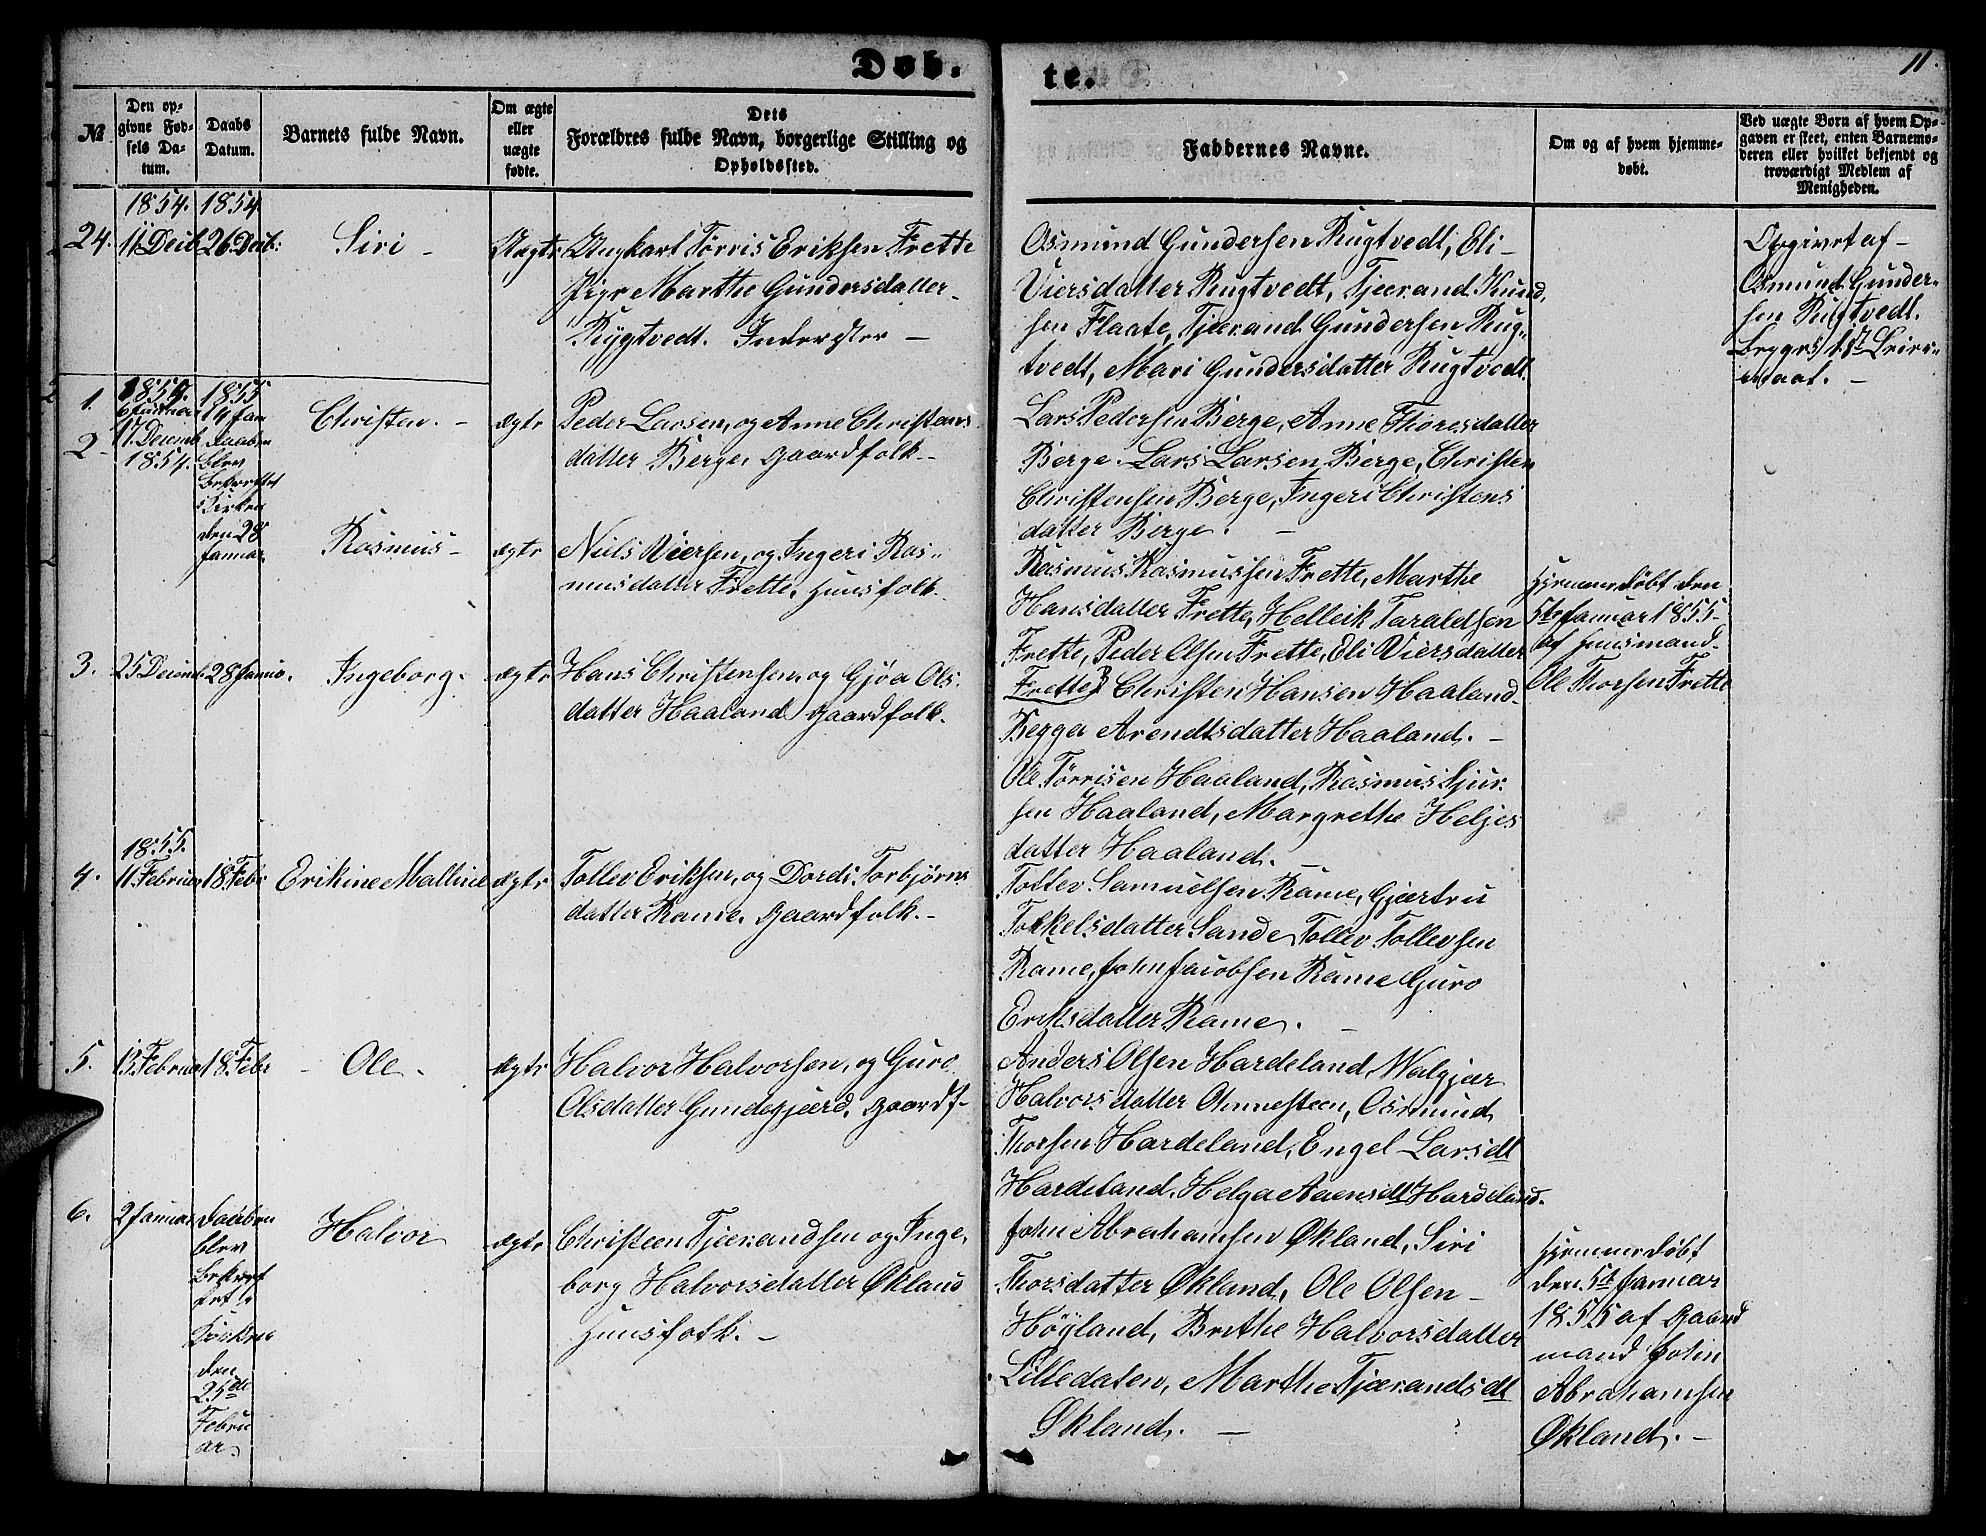 Døb-
te.
11.
№
Den op-
givne Fød-
sels Da-
tum.
Daabs
Datum.
Barnets fulde Navn.
Om ægte
eller
uægte
fødte.
Dets
Forældres fulde Navn, borgerlige Stilling og
Opholdssted.
Faddernes Navne.
Om og af hvem hjemme-
døbt.
Ved uægte Børn af hvem Op-
gaven er skeet, enten Barnemo-
deren eller hvilket bekjendt og
troværdigt Medlem af
Menigheden.
1854.
1854
24.
11 Decb
26 Decb:
Siri -
Uægte
Ungkarl Tørris Eriksen Frette
Pige Marthe Gundersdatter
Rygtvedt. Inderster -
Osmund Gundersen Rugtvedt, Eli
Viersdatter Rugtvedt, Tjærand Knud
sen Flaate, Tjærand Gundersen Rug-
tvedt, Mari Gundersdatter Rugtvedt
Opgivet af -
Osmund Gunder-
sen Rugtvedt.
Begges 1st Leier-
maal. -
1.
1854.
1855
14 Jan
Christen. -
ægte
Peder Larsen, og Anne Christens
datter Berge, Gaardfolk. -
Lars Pedersen Berge, Anne Thoresdatter
Berge. Lars Larsen Berge, Christen
Christensen Berge, Ingeri Christens
datter Berge. -
2
17. Decemb
1854.
Daaben
blev
Bekræftet
i Kirken
den 28
Januar
Rasmus -
ægte
Niels Viersen, og Ingeri Ras-
musdatter Frette, Huusfolk.
Rasmus Rasmussen Frette, Marthe
Hansdatter Frette, Helleik Taraldsen
Frette, Peder Olsen Frette, Eli Viersdatter
Frette
Hjemmedøbt den
5te Januar 1855
af Huusmand
Ole Thorsen Frette
3.
25 Decemb
28 Janua.
Ingeborg.
ægte
Hans Christensen og Gjøa Ols
datter Haaland Gaardfolk.
Christen Hansen Haaland
Begga Arendtsdatter Haaland. -
Ole Tørrisen Haaland, Rasmus Sjur
sen Haaland, Margrethe Heljes
datter Haaland. -
1855.
4.
11 Februar
18 Febr
Erikine Malline
ægte
Tollev Eriksen, og Dordi Torbjørns
datter Rame, Gaardfolk. -
Tollev Samuelsen Rame, Gjærtru
Torkelsdatter Sande Tollev Tollevsen
Rame, John Jacobsen Rame Guro
Eriksdatter Rame. -
5.
13. Februar
18. Febr
- Ole -
ægte
Halvor Halvorsen, og Guro
Olsdatter Gundegjærd. Gaardf-
Anders Olsen Hardeland, Walgjær
Halvorsdatter Ønnesteen, Osmund
Thorsen Hardeland, Engel Larsdt
Hardeland, Helga Aaensdt Hardeland.
6.
2 Januar
Daaben
blev
Bekræf
tet i
Kirken
den
25de
Febru
ar
Halvor
ægte
Christen Tjærandsen og Inge,
borg Halvorsdatter Økland
Huusfolk. -
John Abrahamsen Økland, Siri
Thorsdatter Økland, Ole Olsen -
Høyland, Brethe Halvorsdatter
Lilledalen, Marthe Tjærandsdt
Økland. -
Hjemmedøbt
den 5te Januar
1855 af Gaard
mand John
Abrahamsen
Økland. -